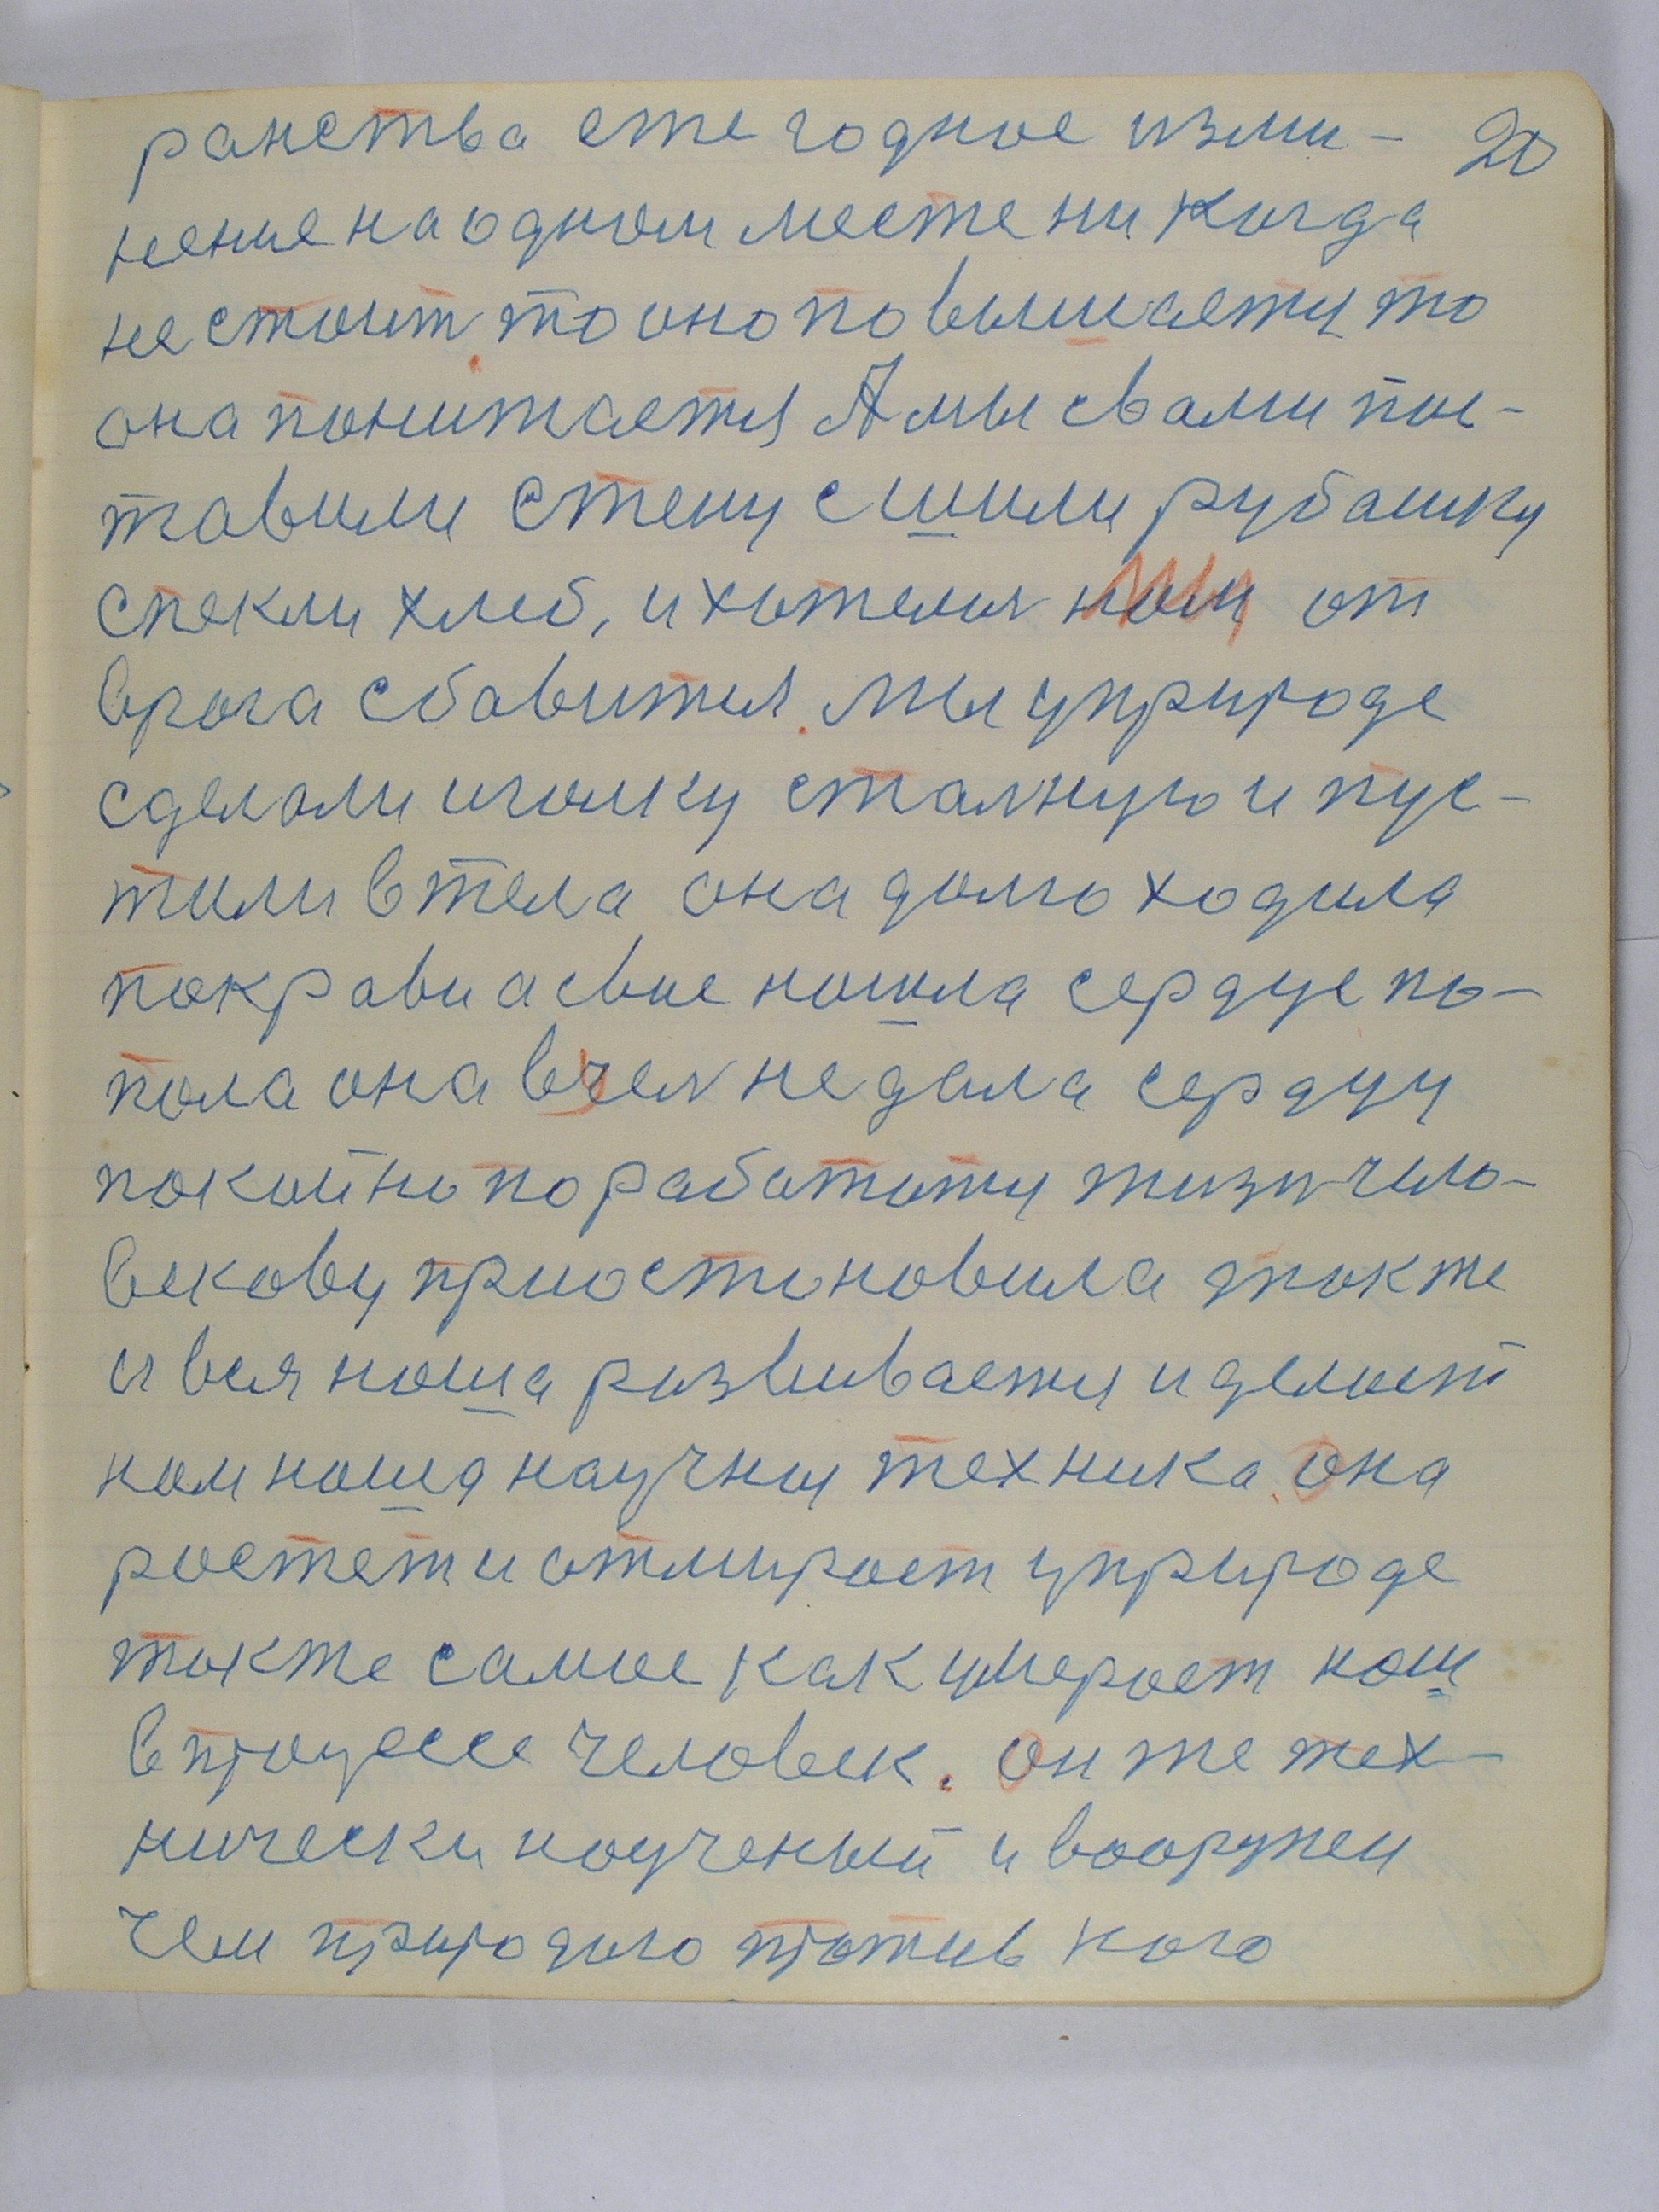 ранства еже годное изми- 20
нение на одном месте ни когда
не стоит. то оно повышается то
она понижается А мы свами пос-
тавили стену сшили рубашку
спекли хлеб, и хотели от
врага сбавится. мы уприроде
сделали иголку сталную и пус-
тили в тела она долго ходила
покрави а свое нашла сердце по-
пола она всем не дала сердцу
покойно поработать жизн чело-
векову приостоновила также
и вся наша развивается и делает
нам наша научная техника. она
ростет и отмирает уприроде
также самое как умерает наш
в процессе человек. он же тех-
нически наученый и вооружен
чем природного против кого